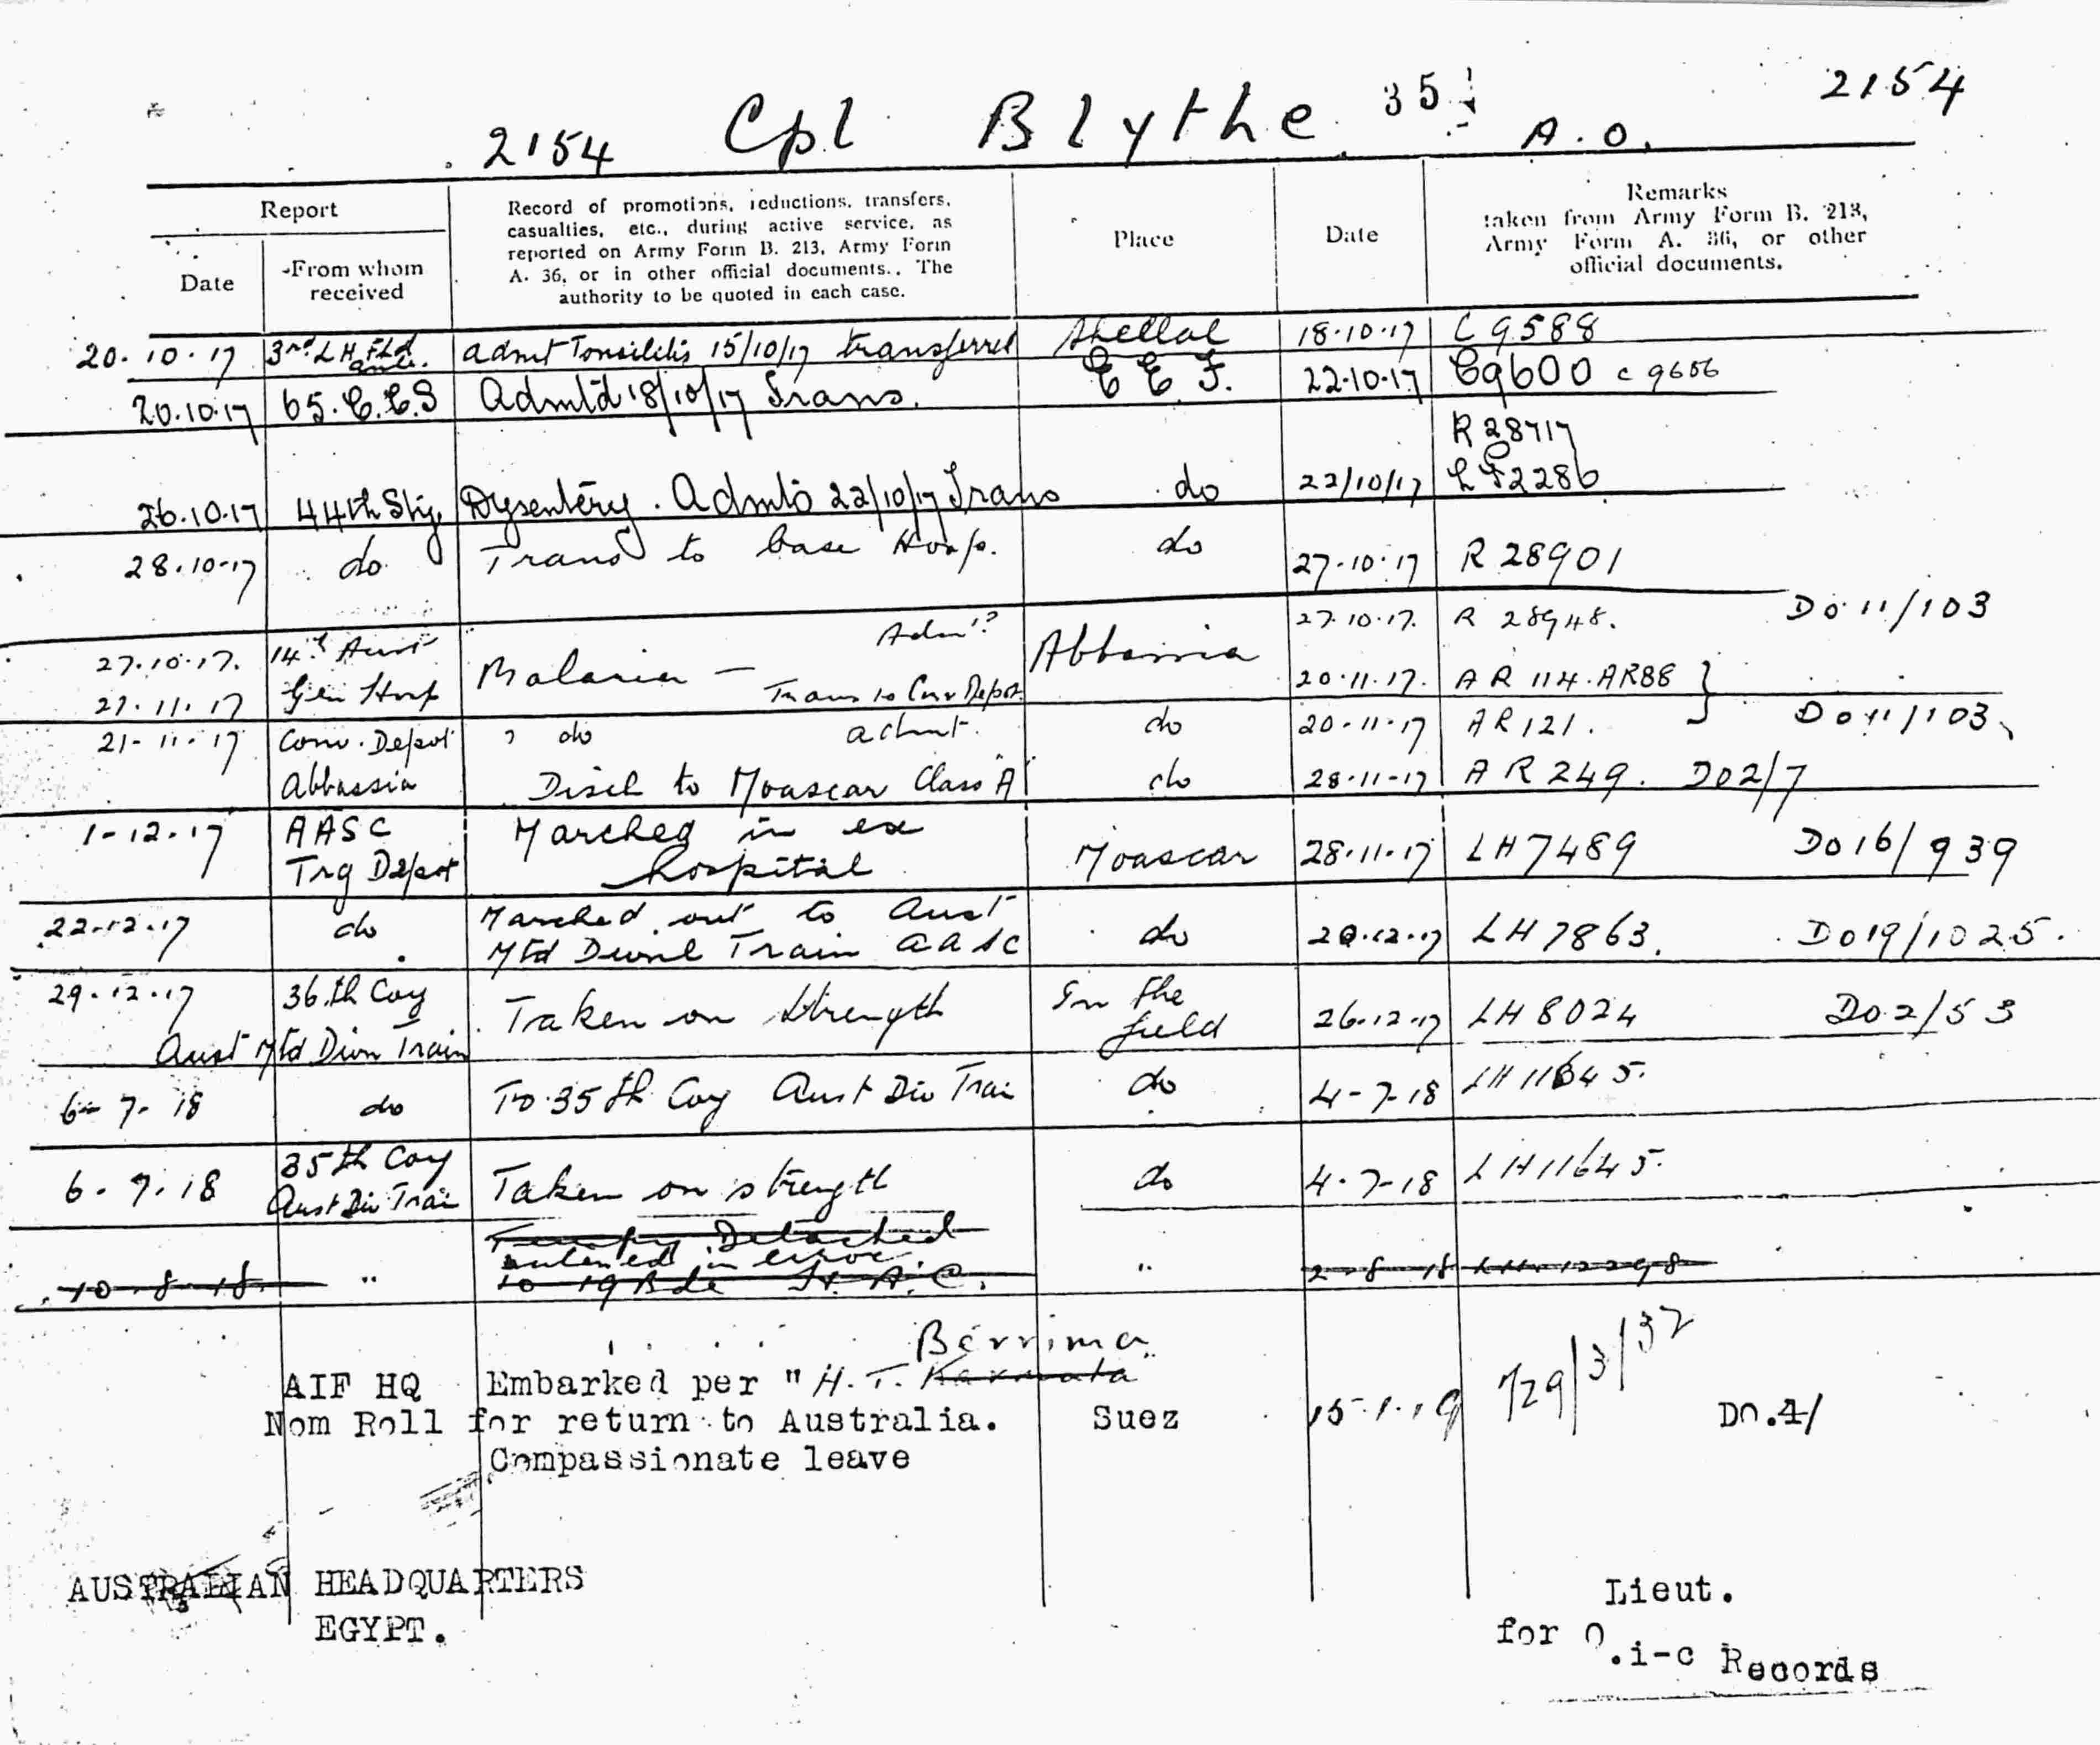 2154 Cpl Blythe. 35 A.O. 2154
Report
Date
From whom received
Record of promotions, reductions, transfers,
casualties, etc., during active service, as
reported on Army Form B. 213, Army Form
A. 36, or in other official documents. The
authority to be quoted in each case.
Place
Date
Remarks
taken from Army Form B. 213,
Army Form A. 36, or other
official documents.
20.10.17 3rd L H Fld Amb. admt Tonsilitis 15/10/17 transferred Shellal 18.10.17 C9588
20.10.17 65.C.C.S Admtd 18/10/17 Trans. E E F. 22.10.17 C9600 C9656
R28717
26.10.17 44th Sty. Dysentery. Admtd 22/10/17 Trans do 22/10/17 2286
28.10.17 do Trans to base Hosp. do 27.10.17 R 28901
27.10.17. 14th Aust Malaria — Adm Abbassia 27.10.17. R 28948. Do 11/103
21.11.17 Gen Hosp Trans to Conv Depot 20.11.17. AR 114. AR88 }
21-11-17 Conv. Depot do admt. do 20-11-17 AR121. Do 11/103
Abbassia Disch to Moascar Class "A" do 28-11-17 AR 249. D02/7
1-12-17 AASC Marched in ex
Trg Depot hospital Moascar 28.11.17 LH7489 Do16/939
22.12.17 do Marched out to Aust
Mtd Divnl Train AASC do 20.12.17 LH7863. Do19/1025.
29.12.17 36th Coy Taken on Strength In the field 26.12.17 LH8024 Do2/53
Aust Mtd Divn Train
6-7-18 do To 35th Coy Aust Div Train do 4-7-18 LH11645.
6.7.18 35th Coy Aust Div Train Taken on strength do 4.7-18 LH11645.
Tempy Detached
entered in error.
10-8-18. " to 19 Bde H.A.C. " 2-8-18 LH 12298
Berrima
AIF HQ Embarked per "H.T. Karmala
Nom Roll for return to Australia. Suez 15.1.19 729/3/32 DO.4/
Compassionate leave
AUSTRALIAN HEADQUARTERS
EGYPT.
Lieut.
for O.i-c Records